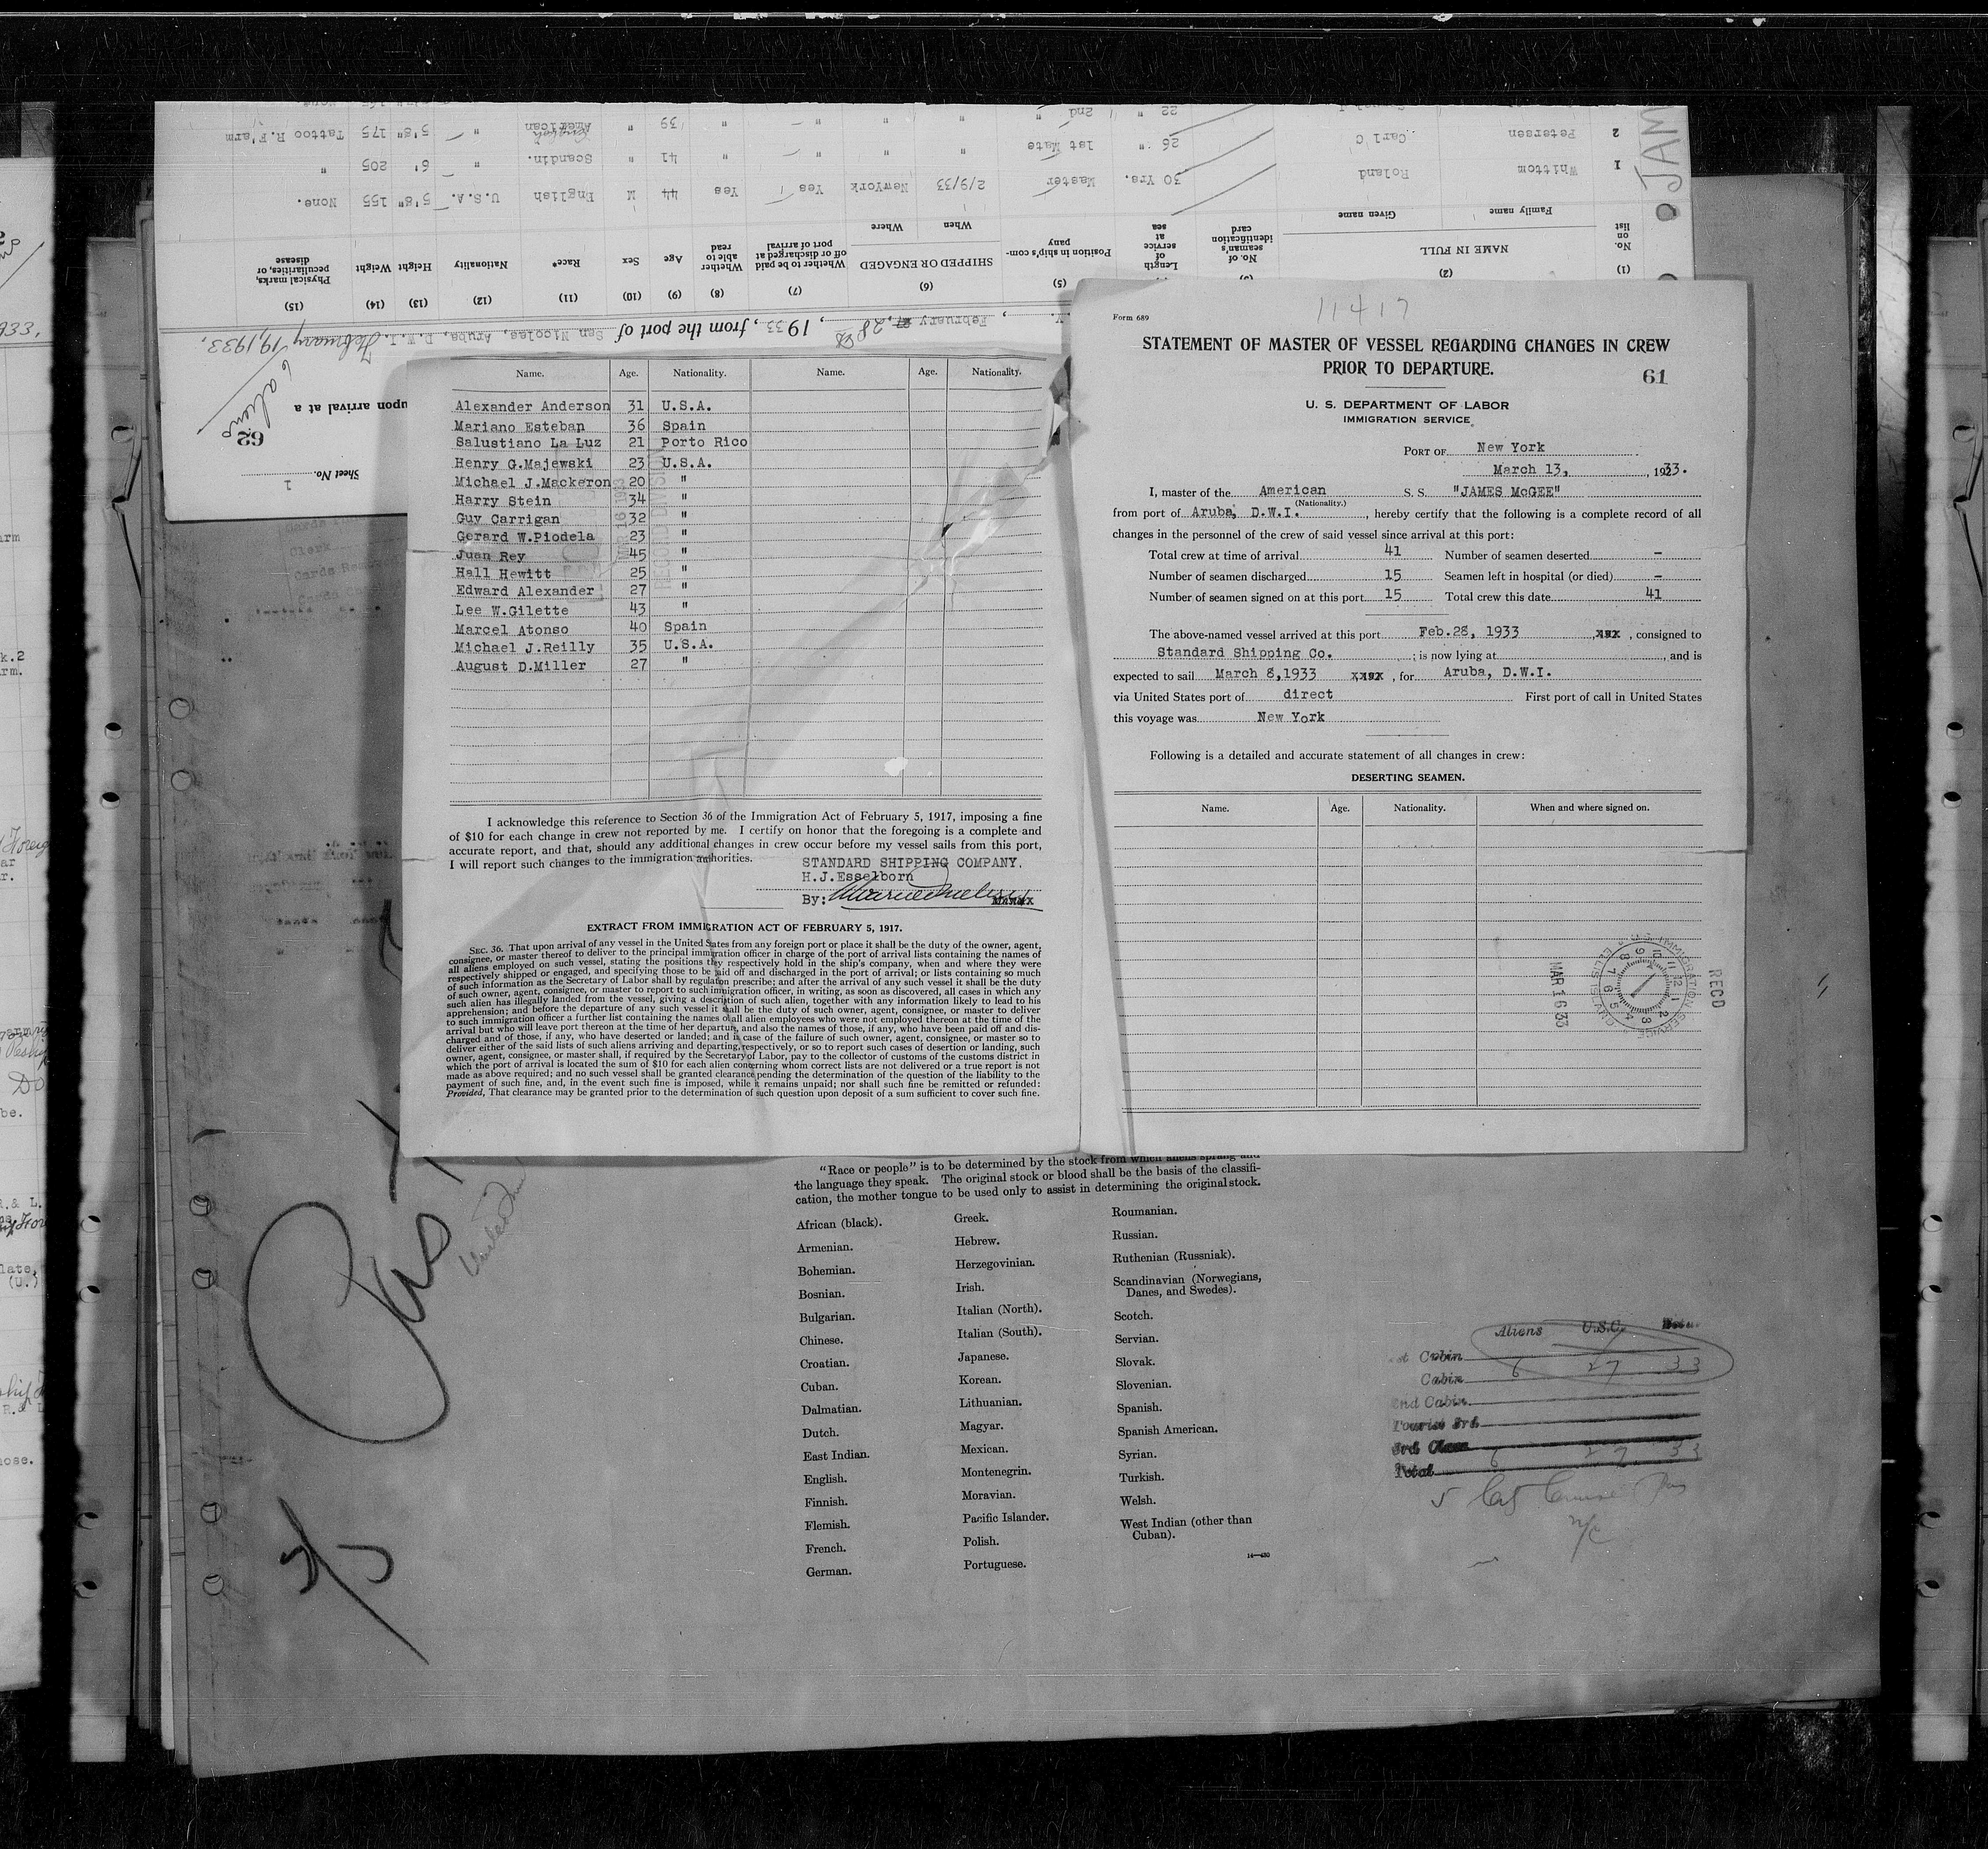 Form 689
11417
STATEMENT OF MASTER OF VESSEL REGARDING CHANGES IN CREW
PRIOR TO DEPARTURE.
61
U. S. DEPARTMENT OF LABOR
IMMIGRATION SERVICE
PORT OF New York
March 13, , 1933.
I, master of the American S. S. "JAMES McGEE"
(Nationality.)
from port of Aruba, D.W.I. , hereby certify that the following is a complete record of all
changes in the personnel of the crew of said vessel since arrival at this port:
Total crew at time of arrival 41 Number of seamen deserted –
Number of seamen discharged 15 Seamen left in hospital (or died) –
Number of seamen signed on at this port 15 Total crew this date 41
The above-named vessel arrived at this port Feb.28, 1933 , xxx , consigned to
Standard Shipping Co. ; is now lying at , and is
expected to sail March 8,1933 xxxx , for Aruba, D.W.I.
via United States port of direct First port of call in United States
this voyage was New York
Following is a detailed and accurate statement of all changes in crew:
DESERTING SEAMEN.
Name. Age. Nationality. When and where signed on.
RECD
U.S. IMMIGRATION SERVICE ELLIS
MAR 16 33
Name. Age. Nationality. Name. Age. Nationality.
Alexander Anderson 31 U.S.A.
Mariano Esteban 36 Spain
Salustiano La Luz 21 Porto Rico
Henry G.Majewski 23 U.S.A.
Michael J.Mackeron 20 "
Harry Stein 34 "
Guy Carrigan 32 "
Gerard W.Piodela 23 "
Juan Rey 45 "
Hall Hewitt 25 "
Edward Alexander 27 "
Lee W.Gilette 43 "
Marcel Atonso 40 Spain
Michael J.Reilly 35 U.S.A.
August D.Miller 27 "
I acknowledge this reference to Section 36 of the Immigration Act of February 5, 1917, imposing a fine
of $10 for each change in crew not reported by me. I certify on honor that the foregoing is a complete and
accurate report, and that, should any additional changes in crew occur before my vessel sails from this port,
I will report such changes to the immigration authorities.
STANDARD SHIPPING COMPANY.
H.J.Esselborn
By:
EXTRACT FROM IMMIGRATION ACT OF FEBRUARY 5, 1917.
SEC. 36. That upon arrival of any vessel in the United States from any foreign port or place it shall be the duty of the owner, agent,
consignee, or master thereof to deliver to the principal immigration officer in charge of the port of arrival lists containing the names of
all aliens employed on such vessel, stating the positions they respectively hold in the ship's company, when and where they were
respectively shipped or engaged, and specifying those to be paid off and discharged in the port of arrival; or lists containing so much
of such information as the Secretary of Labor shall by regulation prescribe; and after the arrival of any such vessel it shall be the duty
of such owner, agent, consignee, or master to report to such immigration officer, in writing, as soon as discovered, all cases in which any
such alien has illegally landed from the vessel, giving a description of such alien, together with any information likely to lead to his
apprehension; and before the departure of any such vessel it shall be the duty of such owner, agent, consignee, or master to deliver
to such immigration officer a further list containing the names of all alien employees who were not employed thereon at the time of the
arrival but who will leave port thereon at the time of her departure, and also the names of those, if any, who have been paid off and dis-
charged and of those, if any, who have deserted or landed; and in case of the failure of such owner, agent, consignee, or master so to
deliver either of the said lists of such aliens arriving and departing, respectively, or so to report such cases of desertion or landing, such
owner, agent, consignee, or master shall, if required by the Secretary of Labor, pay to the collector of customs of the customs district in
which the port of arrival is located the sum of $10 for each alien concerning whom correct lists are not delivered or a true report is not
made as above required; and no such vessel shall be granted clearance pending the determination of the question of the liability to the
payment of such fine, and, in the event such fine is imposed, while it remains unpaid; nor shall such fine be remitted or refunded:
Provided, That clearance may be granted prior to the determination of such question upon deposit of a sum sufficient to cover such fine.
Sheet No. 1
62
6 aliens
upon arrival at a
February 28 , 1933, from the port of San Nicolas, Aruba, D.W.I. February 19, 1933.
(1) (2) (5) (6) (7) (8) (9) (10) (11) (12) (13) (14) (15)
No. on list
NAME IN FULL
Family name Given name
No. of seaman's identification card
Length of service at sea
Position in ship's company
SHIPPED OR ENGAGED
When Where
Whether to be paid off or discharged at port of arrival
Whether able to read
Age
Sex
Race*
Nationality
Height
Weight
Physical marks, peculiarities, or disease
1 Whittom Roland 30 Yrs. Master 2/9/33 NewYork Yes Yes 44 M English U.S.A. 5'8" 155 None.
2 Petersen Carl C 26 " 1st Mate " " " " 41 " Scandin. " 6' 205 "
22 " 2nd " " " " " 39 " American " 5'8" 175 Tattoo R.F'arm
JAM
"Race or people" is to be determined by the stock from which aliens sprang and
the language they speak. The original stock or blood shall be the basis of the classifi-
cation, the mother tongue to be used only to assist in determining the original stock.
African (black).
Armenian.
Bohemian.
Bosnian.
Bulgarian.
Chinese.
Croatian.
Cuban.
Dalmatian.
Dutch.
East Indian.
English.
Finnish.
Flemish.
French.
German.
Greek.
Hebrew.
Herzegovinian.
Irish.
Italian (North).
Italian (South).
Japanese.
Korean.
Lithuanian.
Magyar.
Mexican.
Montenegrin.
Moravian.
Pacific Islander.
Polish.
Portuguese.
Roumanian.
Russian.
Ruthenian (Russniak).
Scandinavian (Norwegians,
Danes, and Swedes).
Scotch.
Servian.
Slovak.
Slovenian.
Spanish.
Spanish American.
Syrian.
Turkish.
Welsh.
West Indian (other than
Cuban).
14—430
Aliens U.S.C.
Cabin
Cabin 6 27 33
2nd Cabin
Tourist 3rd
3rd Class
Total 6 27 33